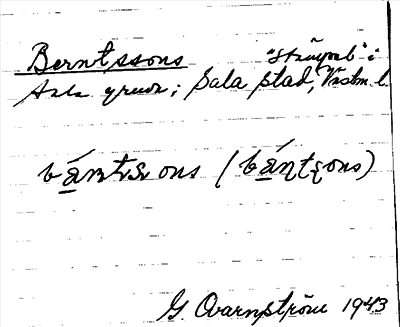 Berntssons "Stämpel" i
Sala gruva; Sala stad, Västm. l.
bántsons (bántsons)
G. Qvarnström 1943